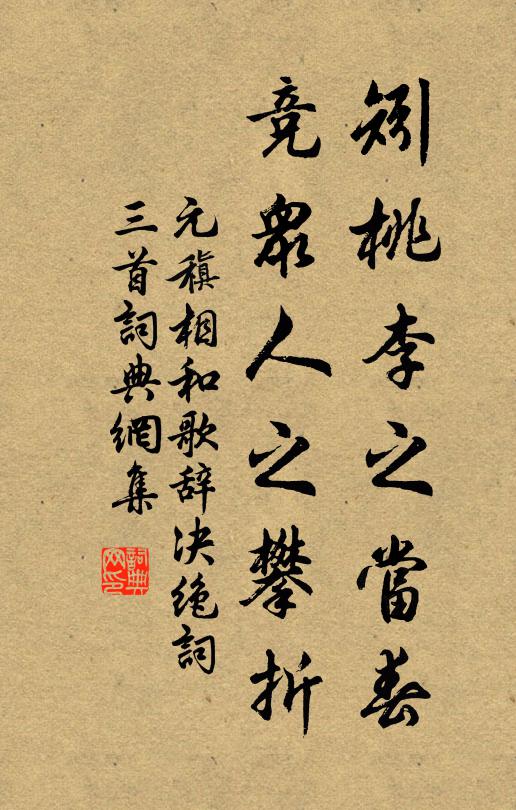 矧桃李之當春
競眾人之攀折
元稹相和歌辞决绝詞
三首詞典網集
詞典網印